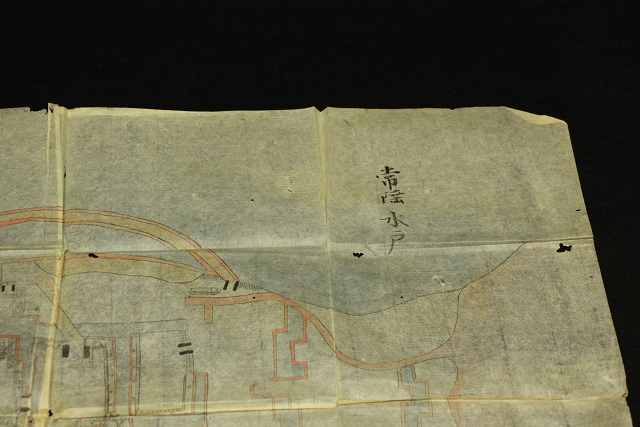 常陸水戸